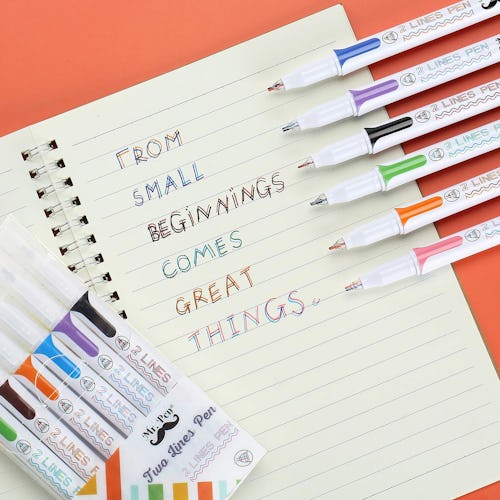 FROM
SMALL
BEGINNINGS
COMES
GREAT
THINGS.
2 LINES PEN
2 LINES PEN
2 LINES PEN
2 LINES PEN
2 LINES PEN
2 LINES PEN
2 LINES
2 LINES
2 LINES
2 LINES
2 LINES
Mr. Pen
Two Lines Pen
2 LINES PEN